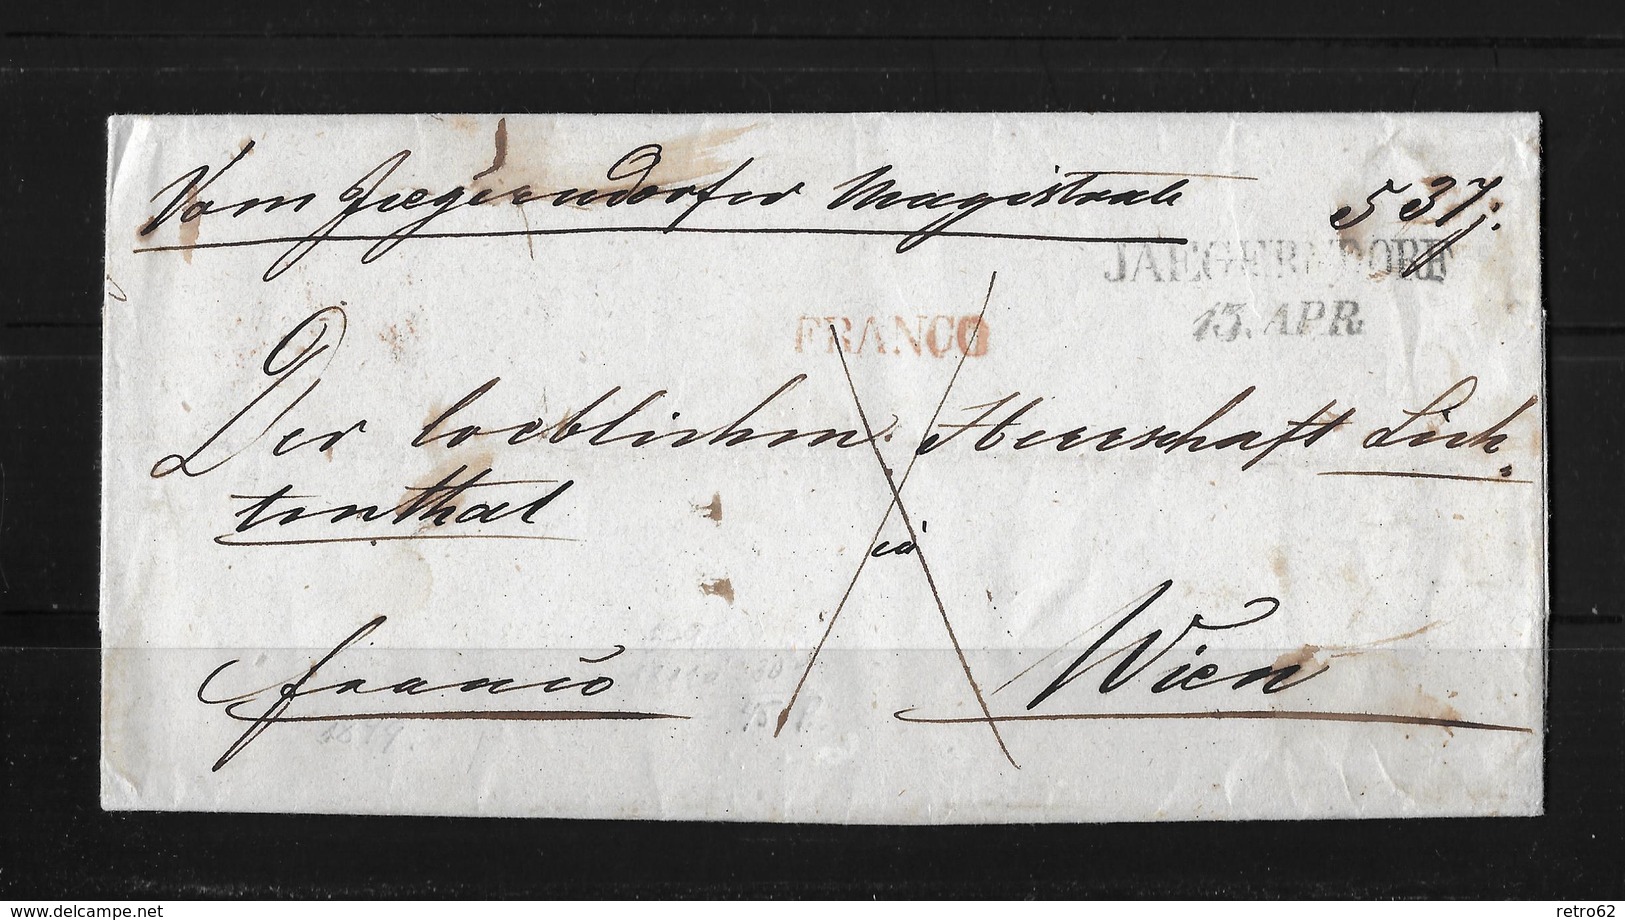 Vom Jaegerndorfer Magistrate 537j:
JAEGERNDORF
FRANCO
13. APR
Der loeblichen Herrschaft Lich-
tenthal
in
franco
Wien
delcampe.net
retro62